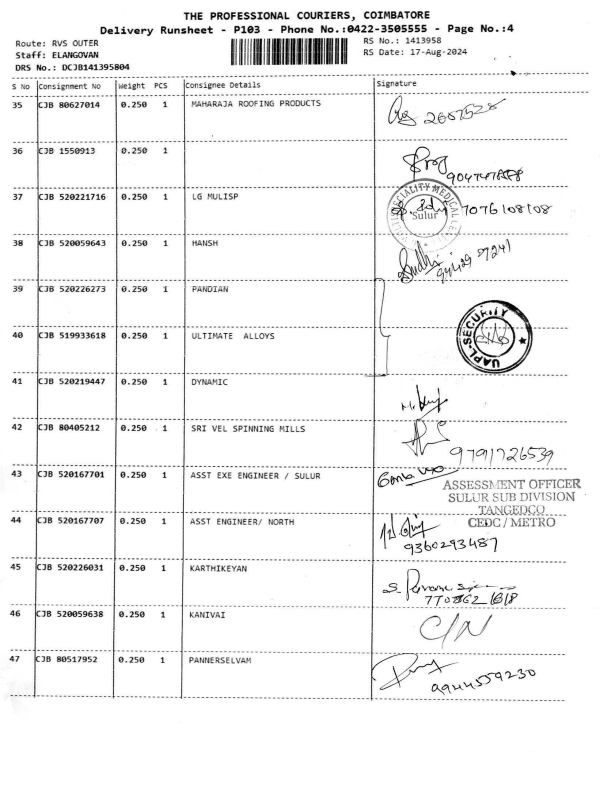 THE PROFESSIONAL COURIERS, COIMBATORE
Delivery Runsheet - P103 - Phone No.:0422-3505555 - Page No.:4
Route: RVS OUTER
RS No.: 1413958
Staff: ELANGOVAN
RS Date: 17-Aug-2024
DRS No.: DCJB141395804
S No Consignment No Weight PCS Consignee Details Signature
35 CJB 80627014 0.250 1 MAHARAJA ROOFING PRODUCTS
2607528
36 CJB 1550913 0.250 1
37 CJB 520221716 0.250 1 LG MULISP
Sulur 7076108108
38 CJB 520059643 0.250 1 HANSH
39 CJB 520226273 0.250 1 PANDIAN
40 CJB 519933618 0.250 1 ULTIMATE ALLOYS
UAPL-SECURITY
41 CJB 520219447 0.250 1 DYNAMIC
42 CJB 80405212 0.250 1 SRI VEL SPINNING MILLS
9791726539
43 CJB 520167701 0.250 1 ASST EXE ENGINEER / SULUR
ASSESSMENT OFFICER
SULUR SUB DIVISION
TANGEDCO
CEDC / METRO
44 CJB 520167707 0.250 1 ASST ENGINEER/ NORTH
9360293487
45 CJB 520226031 0.250 1 KARTHIKEYAN
46 CJB 520059638 0.250 1 KANIVAI
C/N
47 CJB 80517952 0.250 1 PANNERSELVAM
9944559230